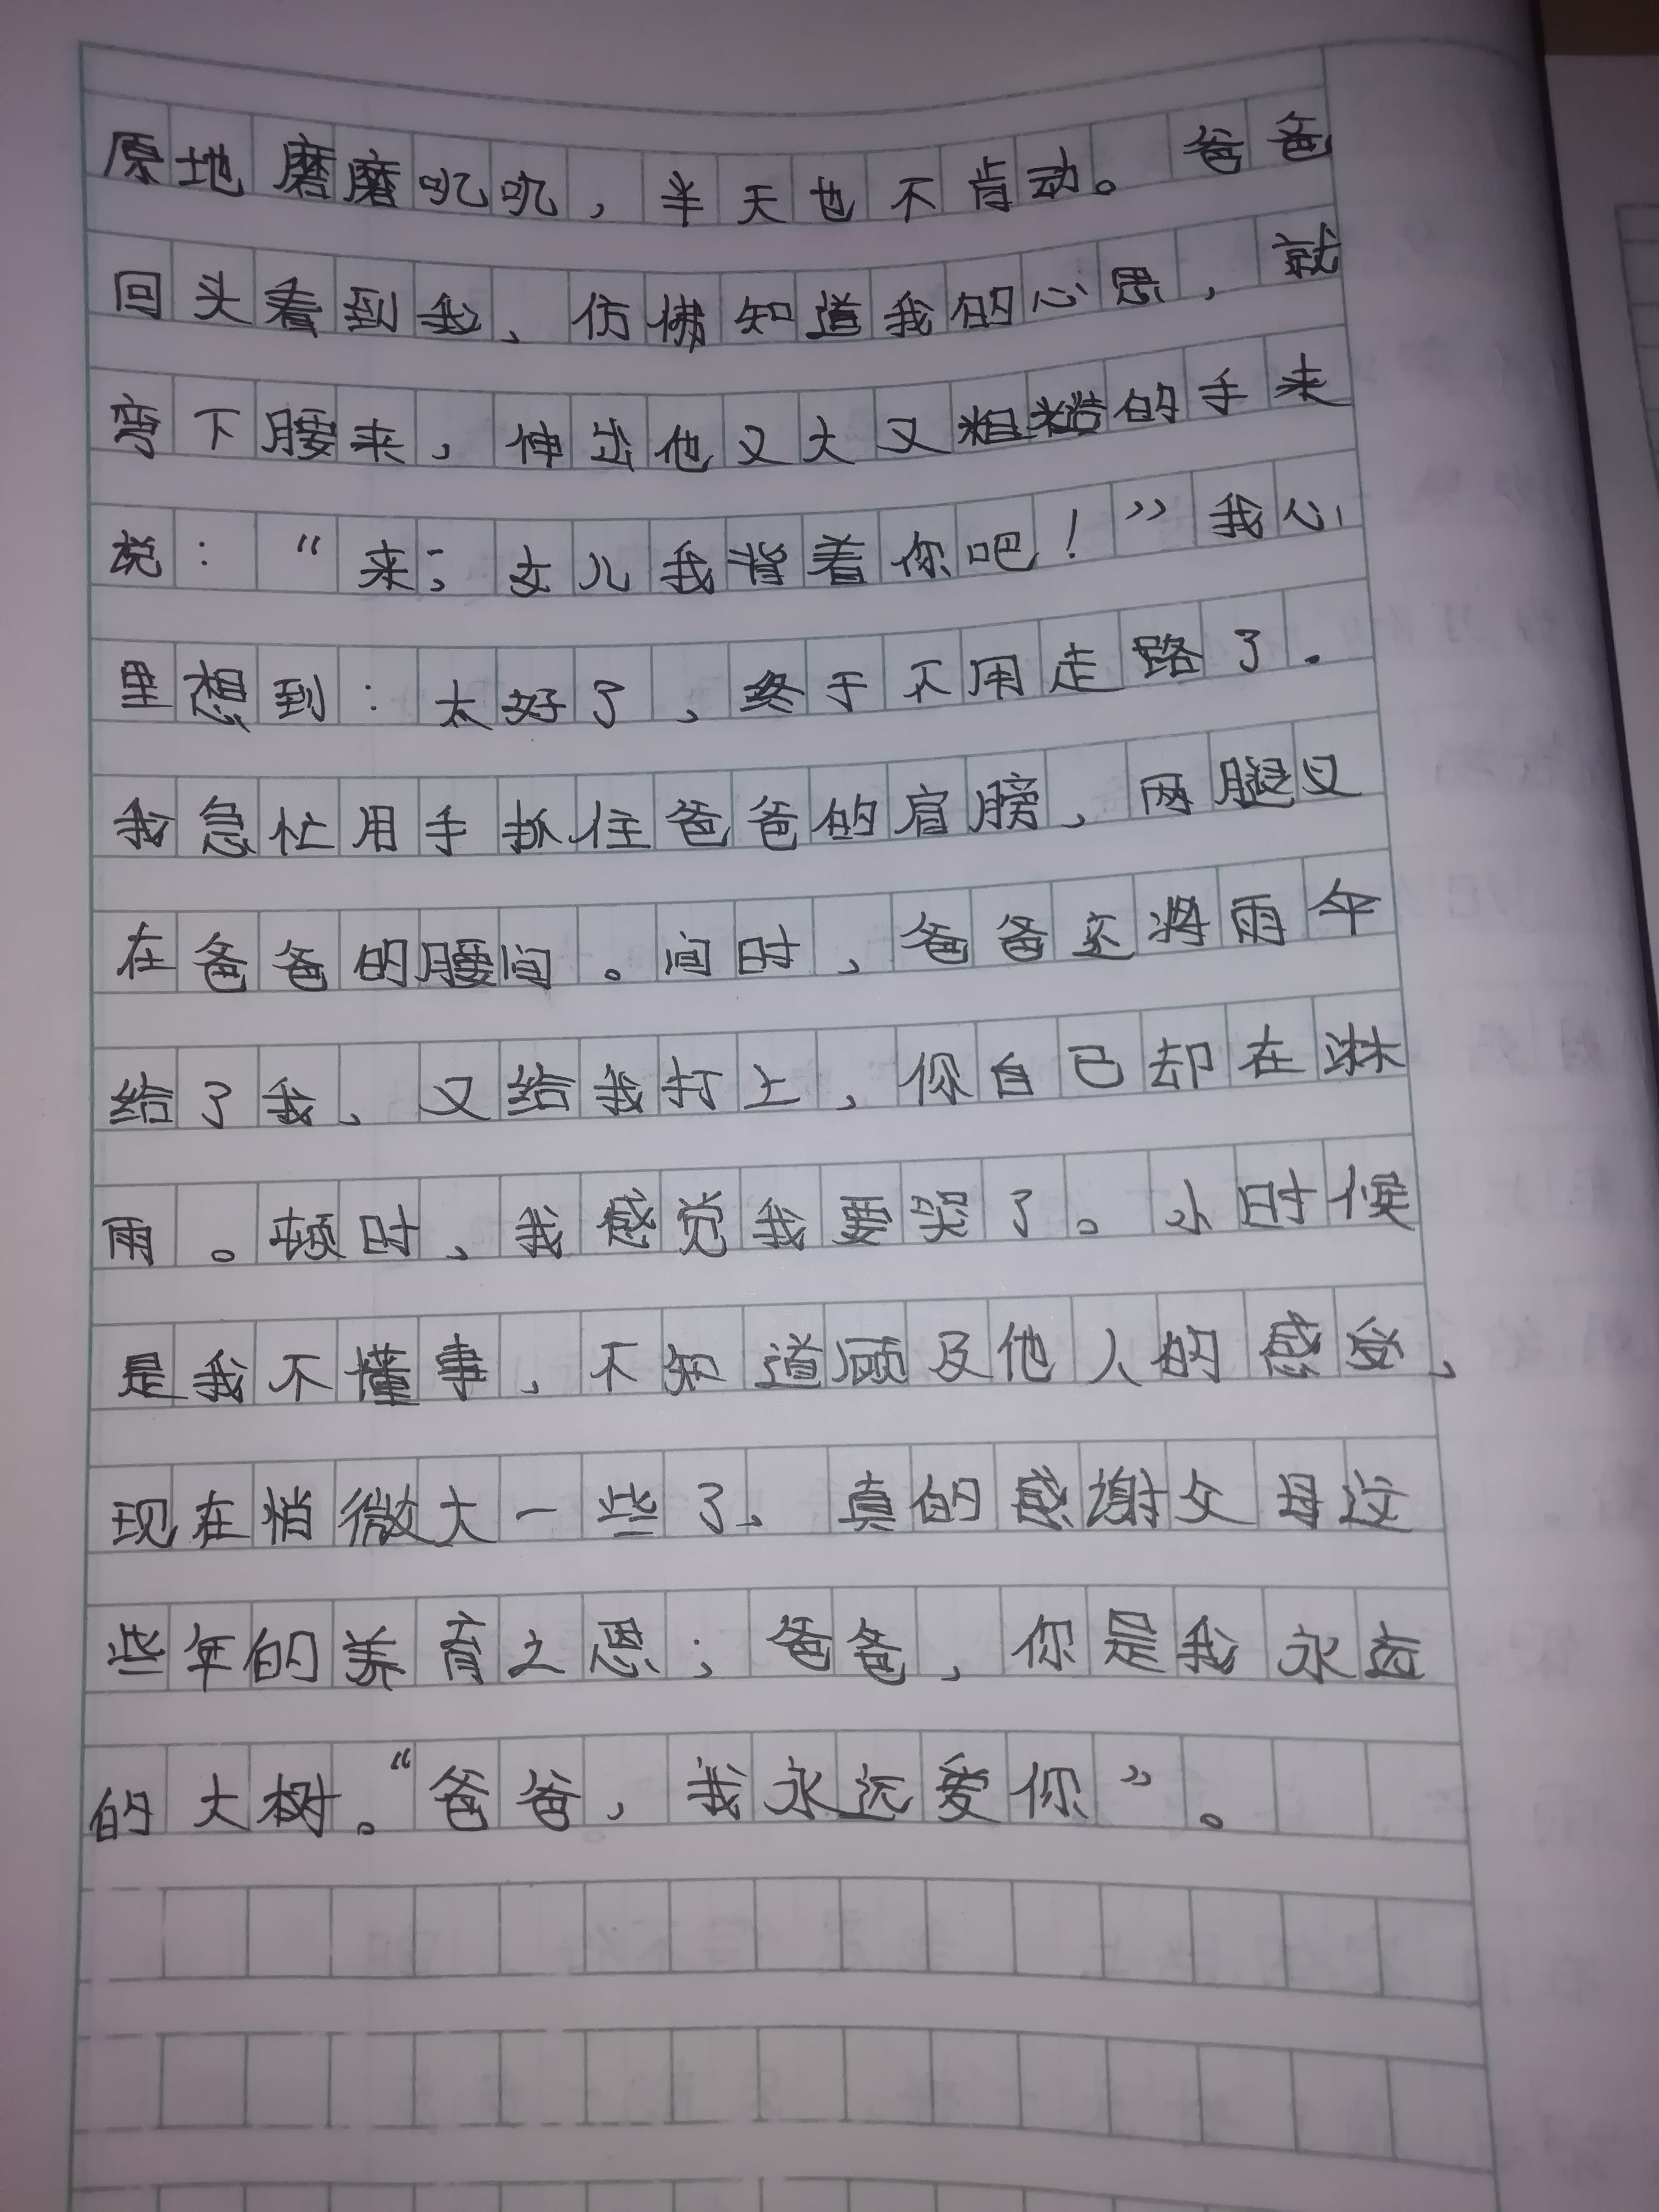 原地磨磨叽叽，半天也不肯动。爸爸
回头看到我，仿佛知道我的心思，就
弯下腰来，伸出他又大又粗糙的手来
说：“来，女儿我背着你吧！”我心
里想到：太好了，终于不用走路了.
我急忙用手抓住爸爸的肩膀，两腿叉
在爸爸的腰间。间时，爸爸还将雨伞
给了我，又给我打上，你自己却在淋
雨。顿时，我感觉我要哭了。小时候
是我不懂事，不知道顾及他人的感受，
现在悄微大一些了，真的感谢父母这
些年的养育之恩；爸爸，你是我永远
的大树。“爸爸，我永远爱你”。